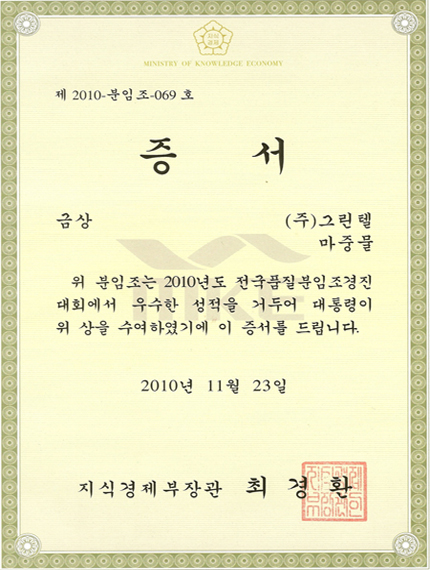 MINISTRY OF KNOWLEDGE ECONOMY
제 2010-분임조-069 호
증 서
금상 (주)그린텔
마중물
위 분임조는 2010년도 전국품질분임조경진
대회에서 우수한 성적을 거두어 대통령이
위 상을 수여하였기에 이 증서를 드립니다.
MKE
2010년 11월 23일
지식경제부장관 최경환